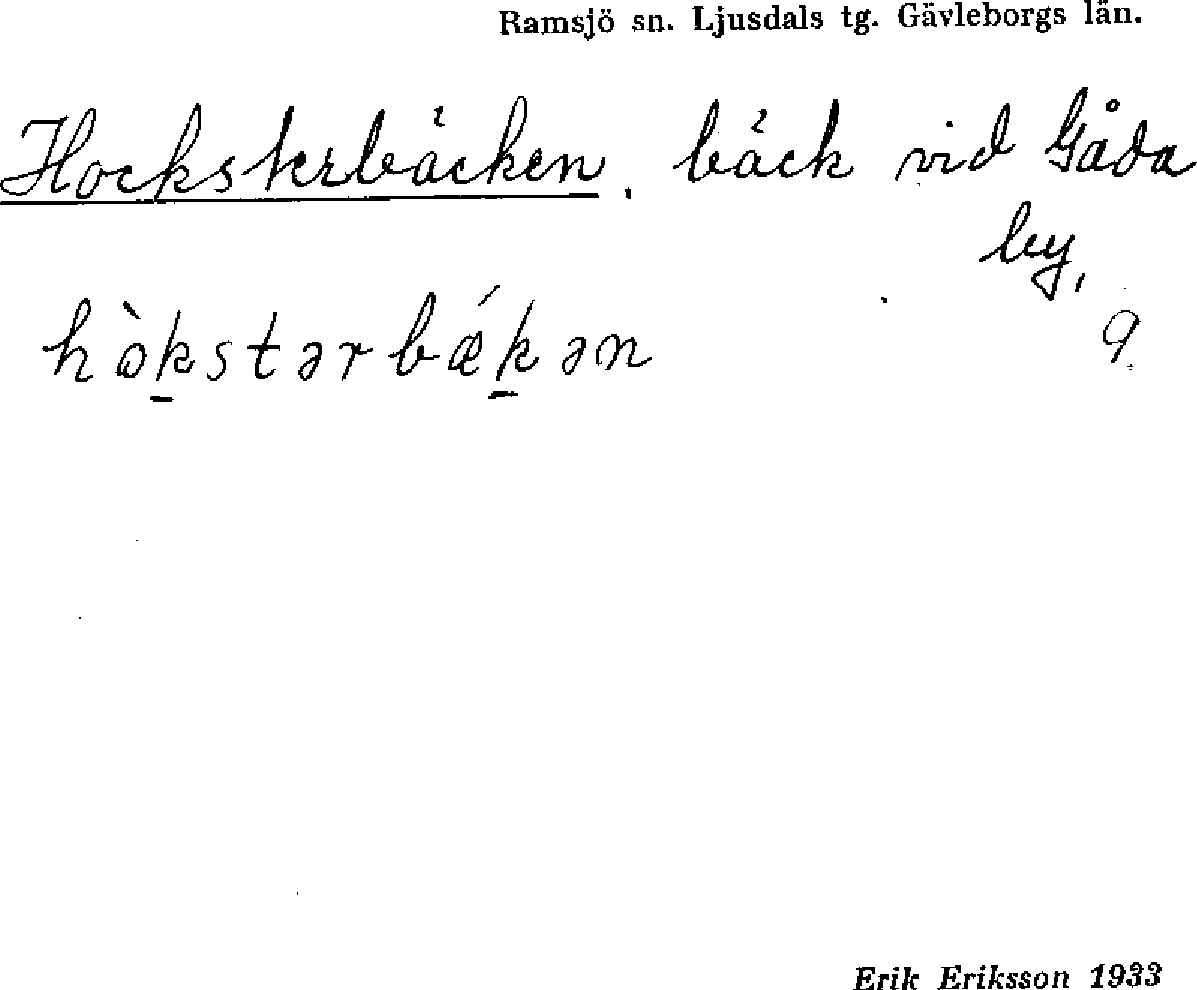 Ramsjö sn. Ljusdals tg. Gävleborgs län.
Hocksterbäcken, bäck vid Gåda
by,
hòkstərbǽkən 9.
Erik Eriksson 1933